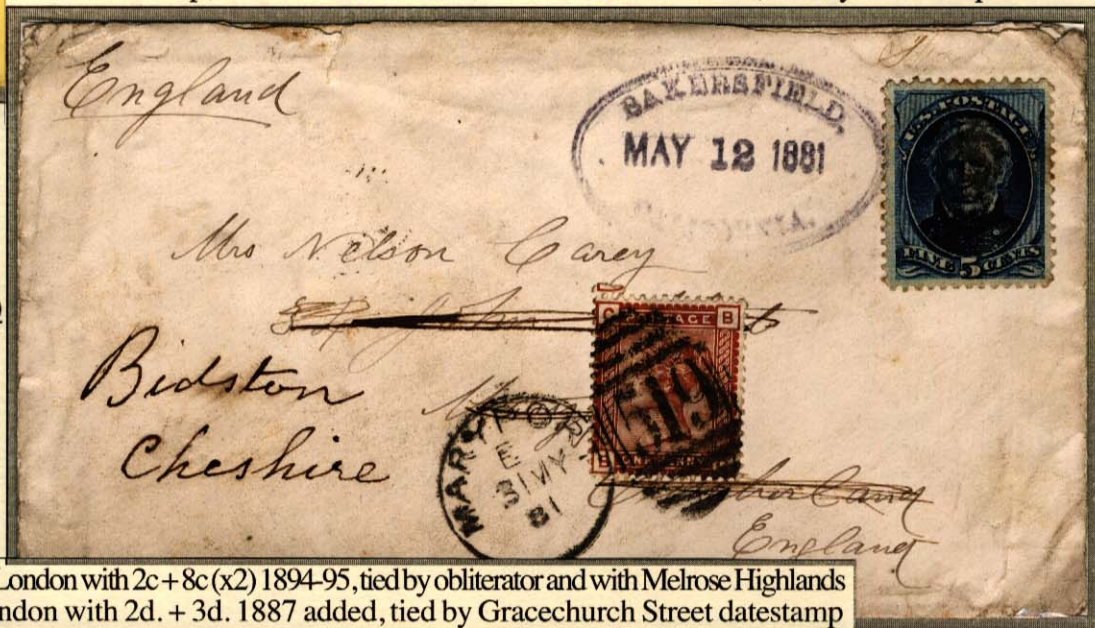 England
BAKERSFIELD,
MAY 12 1881
CALIFORNIA.
U.S. POSTAGE
FIVE 5 CENTS
Mrs Nelson Carey
Bidston
Cheshire
POSTAGE B
519
B
MARYPORT
E
31 MY
81
Cumberland
England
London with 2c + 8c (x2) 1894-95, tied by obliterator and with Melrose Highlands
ndon with 2d. + 3d. 1887 added, tied by Gracechurch Street datestamp